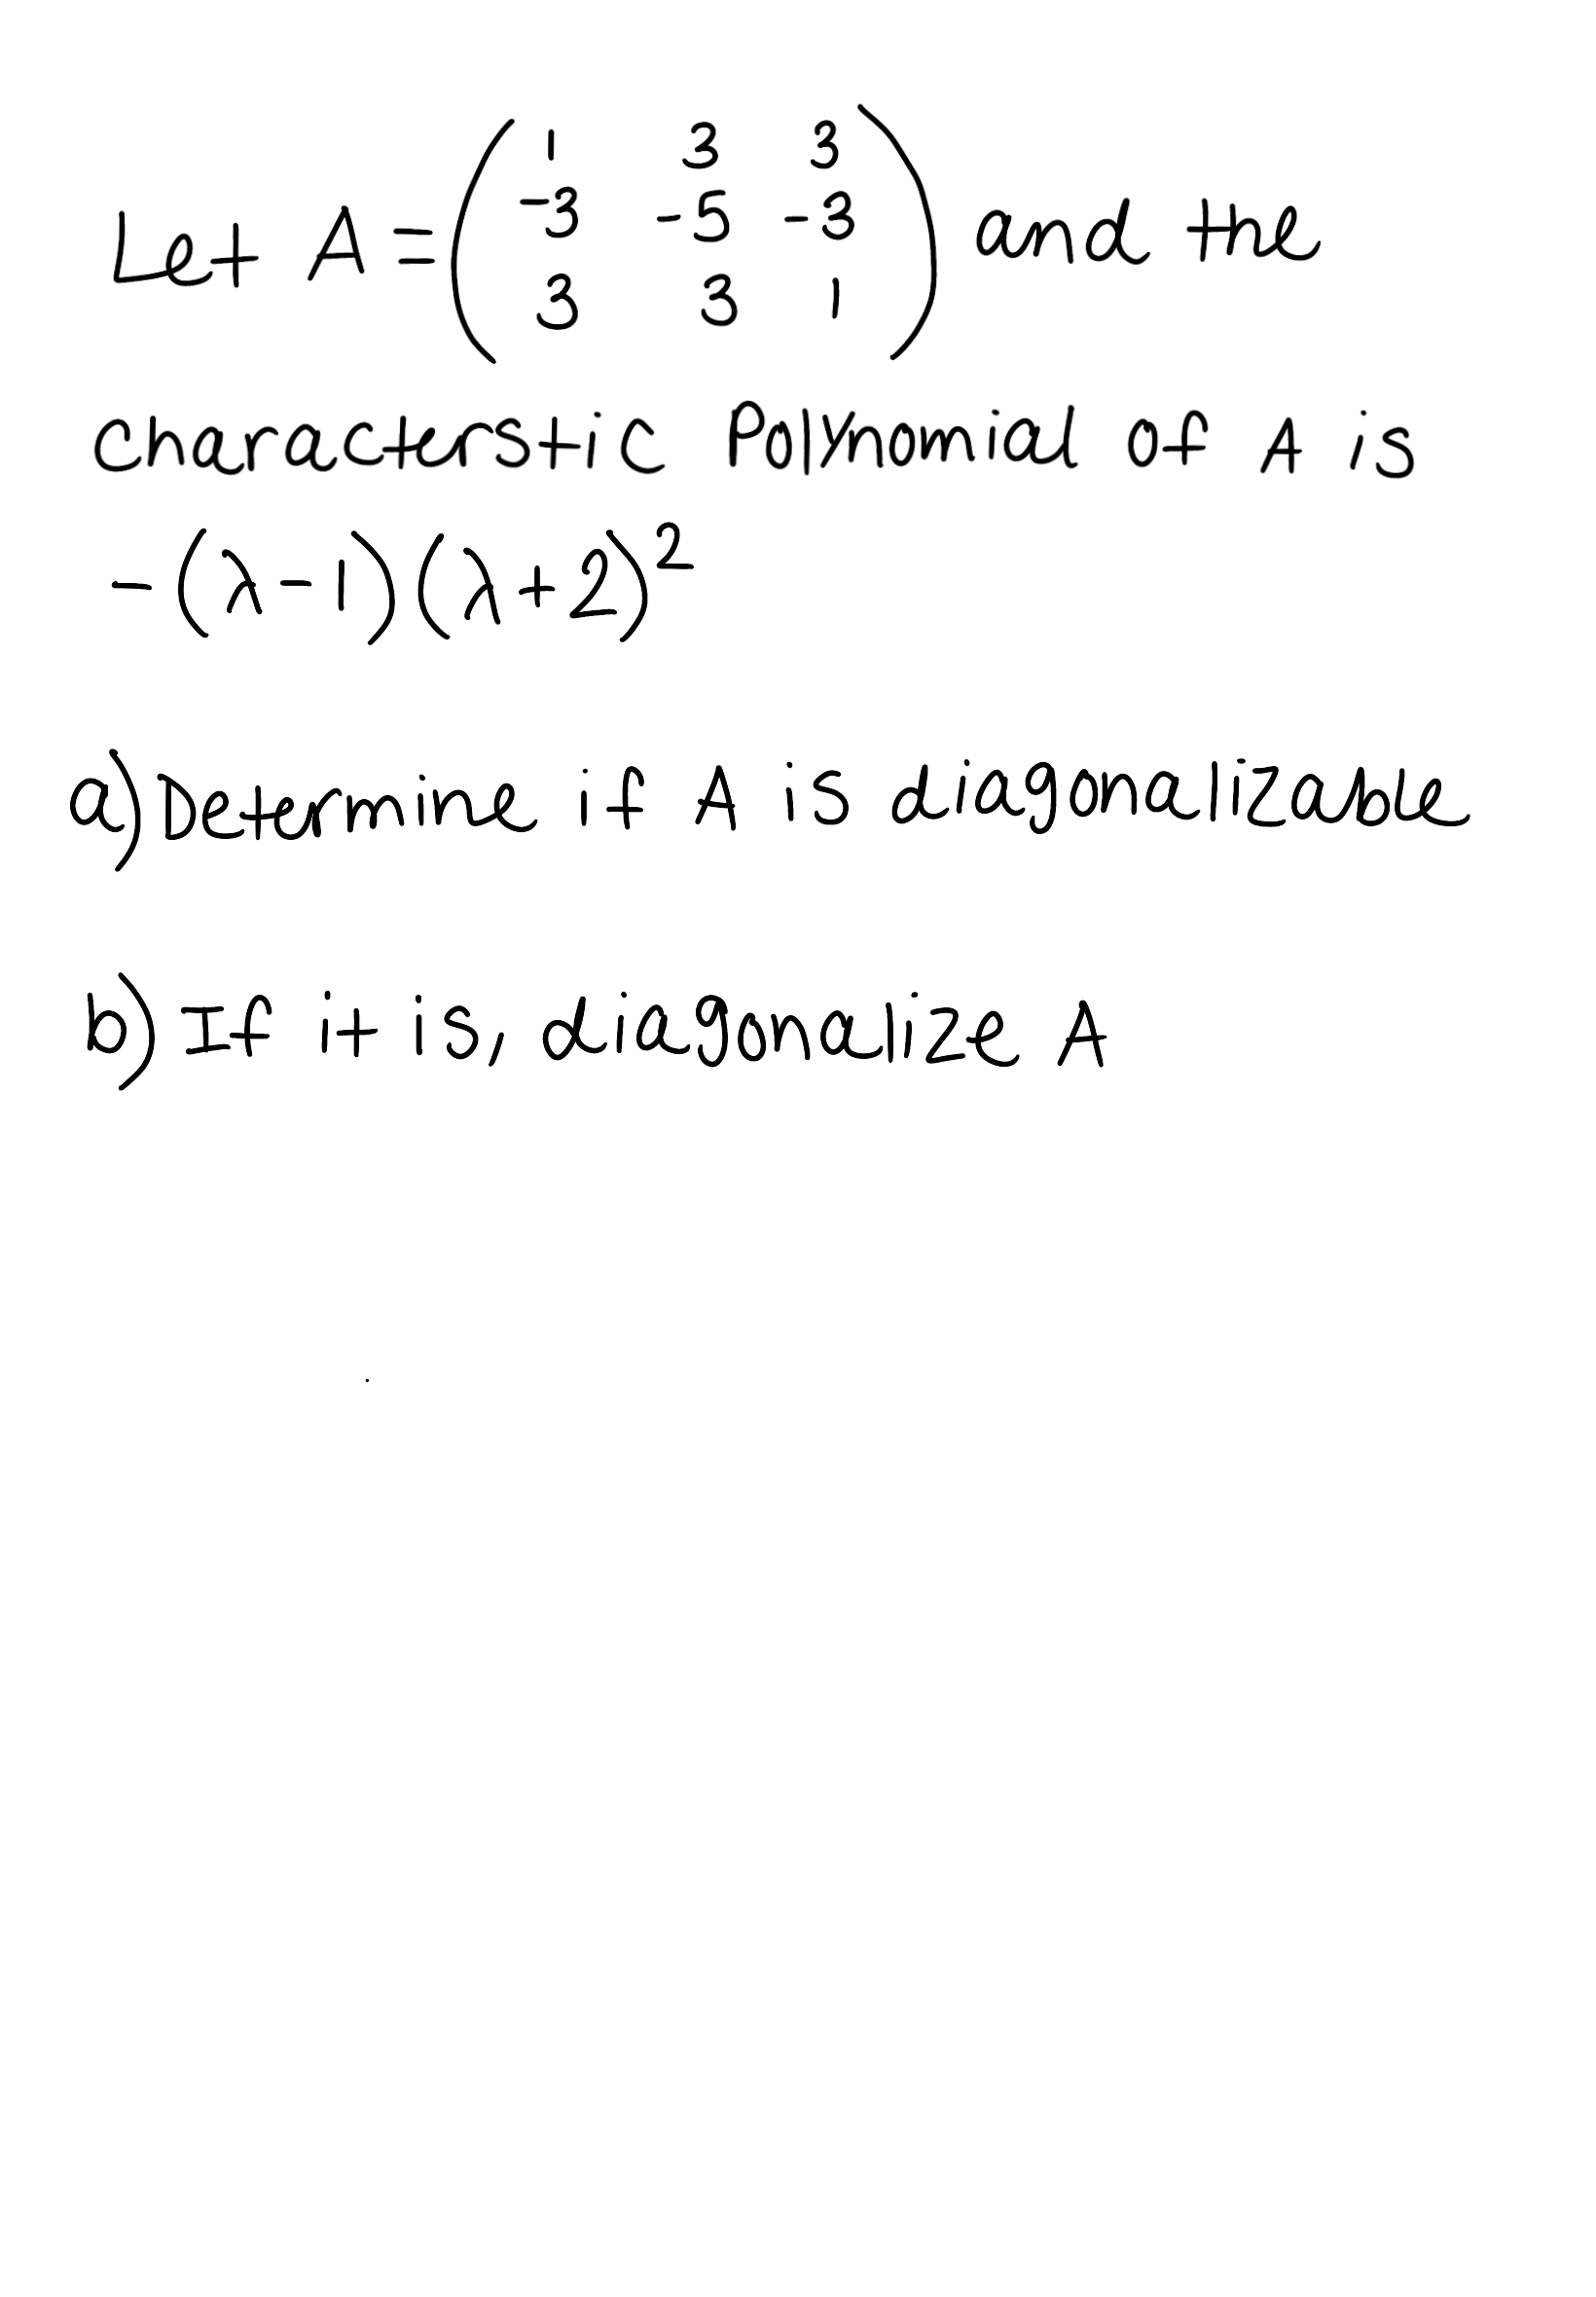 Let A = ( 1 3 3
-3 -5 -3
3 3 1 ) and the
characterstic Polynomial of A is
-(λ-1)(λ+2)²
a) Determine if A is diagonalizable
b) If it is, diagonalize A